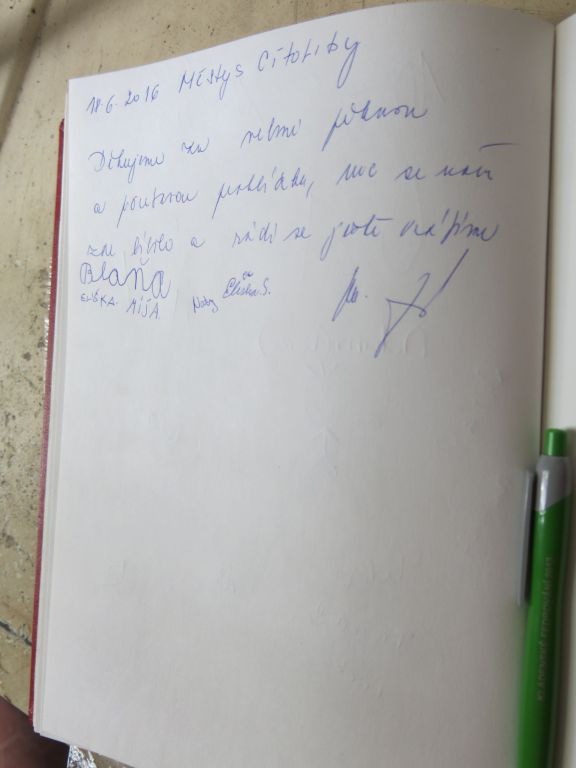 18.6.2016 Městys Cítoliby
Děkujeme za velmi pěknou
a poutavou prohlídku, moc se nám
zde líbilo a rádi se ještě vrátíme
Blaňa
ELIŠKA. MÍŠA. Eliška S.